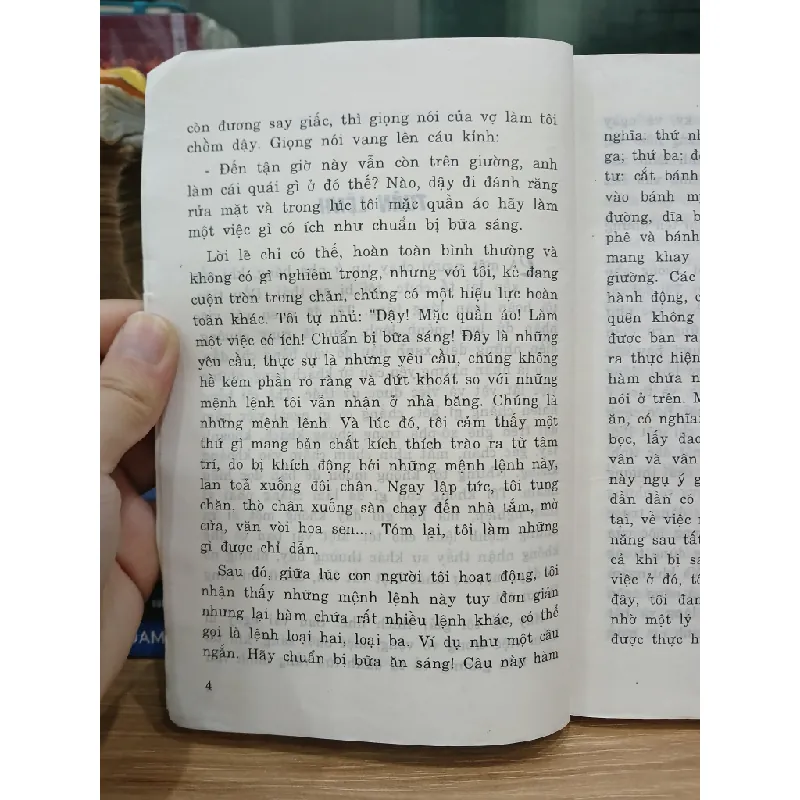 còn đương say giấc, thì giọng nói của vợ làm tôi
chồm dậy. Giọng nói vang lên cáu kỉnh:
- Đến tận giờ này vẫn còn trên giường, anh
làm cái quái gì ở đó thế? Nào, dậy đi đánh răng
rửa mặt và trong lúc tôi mặc quần áo hãy làm
một việc gì có ích như chuẩn bị bữa sáng.
Lời lẽ chỉ có thế, hoàn toàn bình thường và
không có gì nghiêm trọng, nhưng với tôi, kẻ đang
cuộn tròn trong chăn, chúng có một hiệu lực hoàn
toàn khác. Tôi tự nhủ: "Dậy! Mặc quần áo! Làm
một việc có ích! Chuẩn bị bữa sáng! Đây là những
yêu cầu, thực sự là những yêu cầu, chúng không
hề kém phần rõ ràng và dứt khoát so với những
mệnh lệnh tôi vẫn nhận ở nhà băng. Chúng là
những mệnh lệnh. Và lúc đó, tôi cảm thấy một
thứ gì mang bản chất kích thích trào ra từ tâm
trí, do bị khích động bởi những mệnh lệnh này,
lan toả xuống đôi chân. Ngay lập tức, tôi tung
chăn, thò chân xuống sàn chạy đến nhà tắm, mở
cửa, vặn vòi hoa sen.... Tóm lại, tôi làm những
gì được chỉ dẫn.
Sau đó, giữa lúc con người tôi hoạt động, tôi
nhận thấy những mệnh lệnh này tuy đơn giản
nhưng lại hàm chứa rất nhiều lệnh khác, có thể
gọi là lệnh loại hai, loại ba. Ví dụ như một câu
ngắn. Hãy chuẩn bị bữa ăn sáng! Câu này hàm
4
nghĩa: thứ
ga; thứ ba:
tư: cắt bánh
vào bánh
đường, dĩa
phê và bánh
mang khay
giường. Các
hành động,
quên không
được ban ra
ra thực hiện
hàm chứa
nói ở trên.
ăn, có nghĩa:
bọc, lấy dao
vân và vân
này ngụ ý
dần dần có
tại, về việc
năng sau tất
cả khi bị
việc ở đó,
đây, tôi
nhờ một lý
được thực